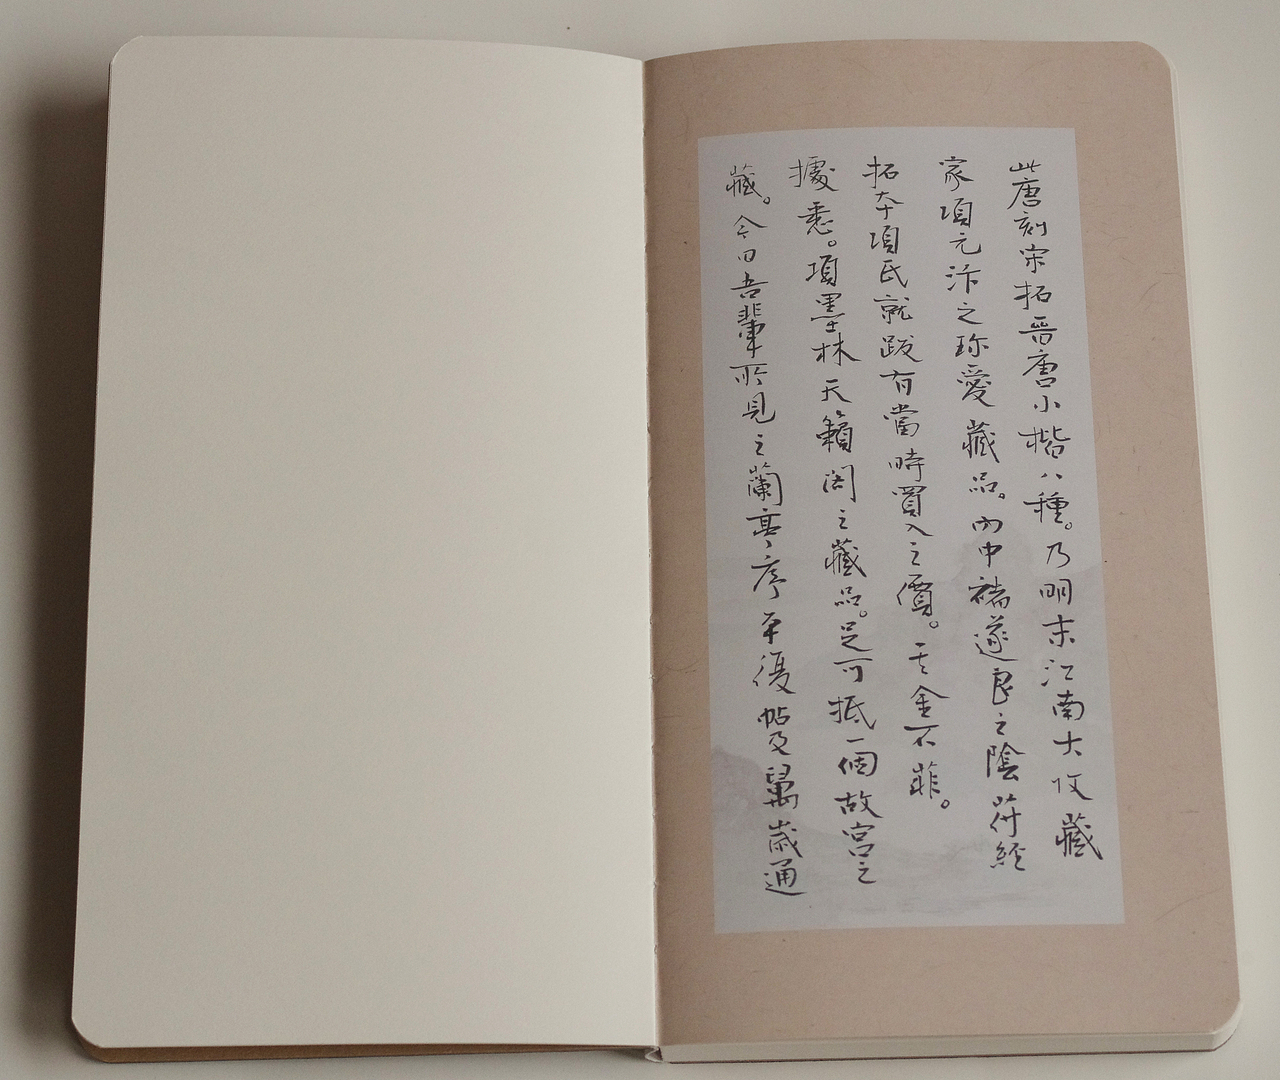 此唐刻宋拓晉唐小楷八種。乃明末江南大收藏
家項元汴之珍愛藏品。內中褚遂良之陰符經
拓本項氏就跋有當時買入之價。其金不菲。
據悉。項墨林天籟閣之藏品。足可抵一個故宮之
藏。今日吾輩所見之蘭亭序平復帖及萬歲通